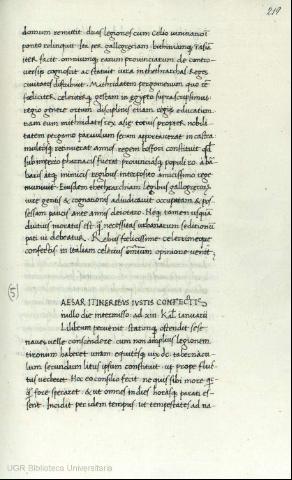 219
domum remittit duas legiones cum Celio uiniciano i
ponto relinquit. Ita per gallogreciam bithiniamq; i asiā
iter facit omniumq; earum prouinciarum de contro-
uersiis cognoscit ac statuit iura in thetrarchas Reges
ciuitates distribuit. Mithridatem pergamenum a quo rē
feliciter celeriterq; gestam in egypto supra scripsimus
regio genere ortum disciplinis etiam regiis educatum
nam eum mithridates rex asię totius propter nobili-
tatem pergamo paruulum secum asportauerat in castra
multosq; retinuerat annos regem bosfori constituit q
sub imperio pharnacis fuerat prouinciasq; populi ro. a bar
baris atq; inimicis regibus interposito amicissimo rege
muniuit. Eiusdem thetrarchiam legibus gallogrecorum
iure gentis & cognationis adiudicauit occupatam & pos-
sessam paucis ante annis a deiotaro. Neq; tamen usquā
diutius moratus est q necessitas urbanarum seditionum
pati uidebatur. Rebus fęlicissime celerrimeque
confectis in italiam celerius omnium opinione uenit
5
AESAR ITINERIBVS IVSTIS CONFECTIS
nullo die intermisso. ad xiiii Kal. Ianuarii
Lilibeum peruenit statimq; ostendit sese
naues uelle conscendere cum non amplius legionem
tironum haberet unam equitesq; uix dc tabernacu
lum secundum litus ipsum constituit ut prope fluc
tus uerberet. Hoc eo consilio fecit ne quis sibi more qc
q fore speraret & ut omnes in dies horasq; parati es-
sent. Incidit per idem tempus ut tempestates ad na-
UGR Biblioteca Universitaria